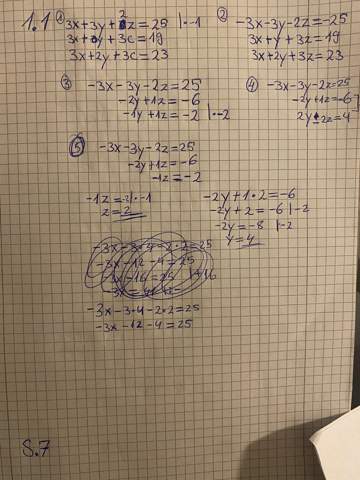 1.1 ① 3x+3y+2z=25 |·-1
3x+0y+3c=19
3x+2y+3c=23
② -3x-3y-2z=-25
3x+y+3z=19
3x+2y+3z=23
③ -3x-3y-2z=25
-2y+1z=-6
-1y+1z=-2 |·-2
④ -3x-3y-2z=25
-2y+1z=-6
2y-2z=4
⑤ -3x-3y-2z=25
-2y+1z=-6
-1z=-2
-1z=-2|·-1
z=2
-2y+1·2=-6
-2y+2=-6 |-2
-2y=-8 |·-2
y=4
-3x-3·4-2·2=25
-3x-12-4=25
-3x-16=25 |+16
-3x-3·4-2·2=25
-3x-12-4=25
S.7